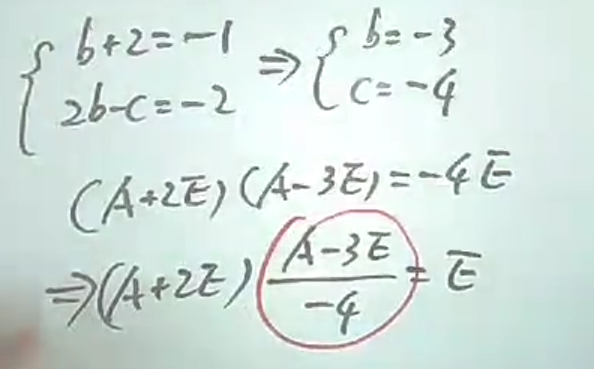 { b+2=-1 ⇒ { b=-3
{ 2b-c=-2 { c=-4
(A+2E)(A-3E)=-4E
⇒(A+2E) (A-3E)/(-4) = E